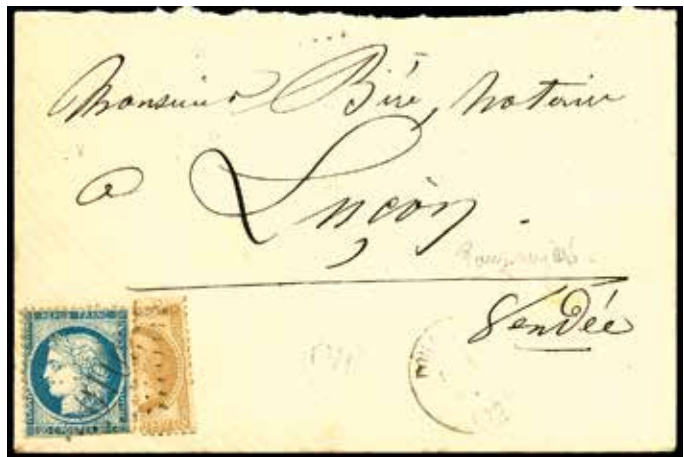 Monsieur Biré, notaire
a
Luçon.
Vendée
REPUB. FRANC.
POSTES